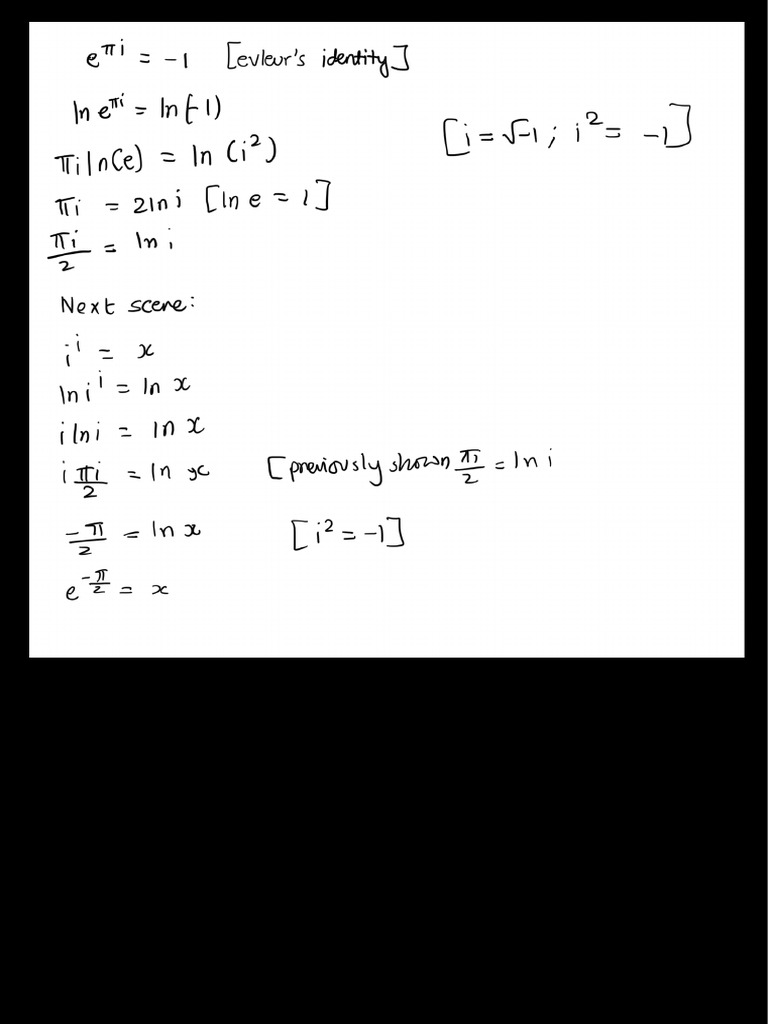 e^{πi} = -1 [evleur's identity]
ln e^{πi} = ln(-1)
πi ln(e) = ln (i²) [i = √-1 ; i² = -1]
πi = 2ln i [ln e = 1]
πi/2 = ln i
Next scene:
i^i = x
ln i^i = ln x
i ln i = ln x
i πi/2 = ln x [previously shown πi/2 = ln i
-π/2 = ln x [i² = -1]
e^{-π/2} = x